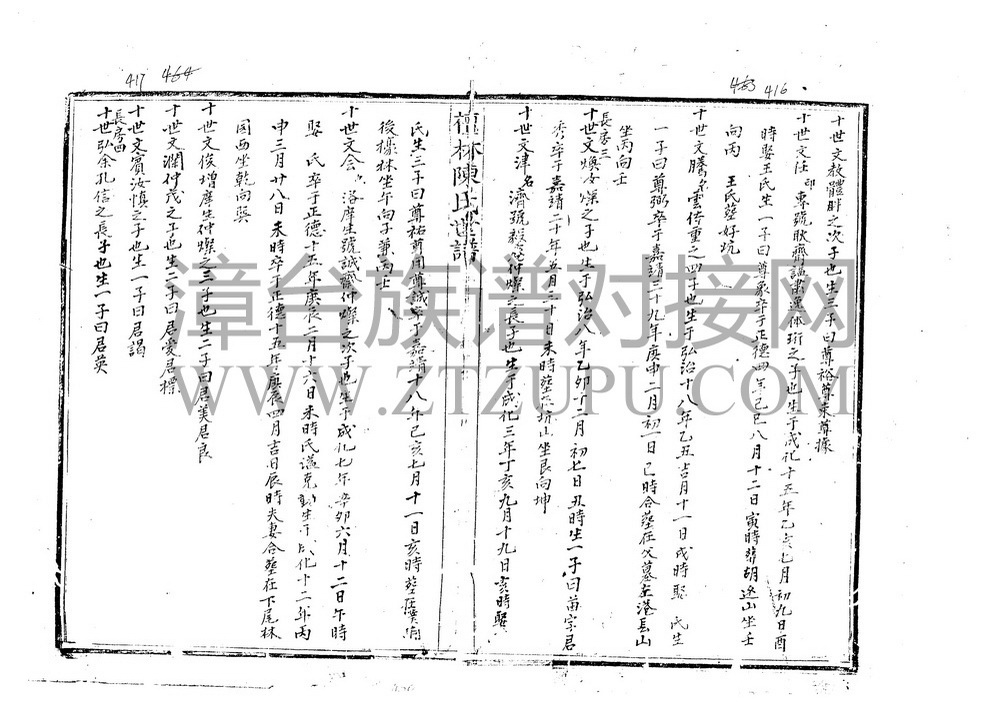 416
463
十世文教體胖之次子也生三子曰尊裕尊東尊據
十世文任 印 專號耿齊謚肅還体珩之子也生于成化十五年乙亥七月初九日酉
時娶王氏生一子曰尊 卒于正德四年己巳八月十二日寅時葬胡逸山坐壬
向丙 王氏塟好坑
十世文騰 雲倚重之四子也生于弘治十八年乙丑吉月十一日戌時娶 氏生
一子曰尊弼卒于嘉靖三十九年庚申二月初一日巳時合塟在父墓左港長山
坐丙向壬
長房三
十世文煥 燦之子也生于弘治八年乙卯十二月初七日丑時生一子曰苗 君
秀卒于嘉靖二十年五月二十日未時塟 坑山坐艮向坤
十世文津 名濟號毅 仲燦之長子也生于成化三年丁亥九月十九日亥時娶
檀林陳氏世譜
氏生三子曰尊祐尊 尊誠卒于嘉靖十八年己亥七月十一日亥時塟在
後檺林坐 向子兼丙士
十世文会 洛庠生號誠齋仲燦之次子也生于成化七年辛卯六月十二日午時
娶 氏卒于正德十五年庚辰二月十六日未時氏謚克勤生于成化十二年丙
申三月廿八日未時卒于正德十五年庚辰四月吉日辰時夫妻合塟在下尾林
園西坐乾向巽
十世文俊增庠生仲燦之三子也生二子曰君美君良
十世文瀾仲茂之子也生二子曰君愛君標
十世文賓汝慎之子也生一子曰君謁
長房四
十世弘余孔信之長子也生一子曰君英
464
417
漳台族谱对接网
WWW.ZTZUPU.COM